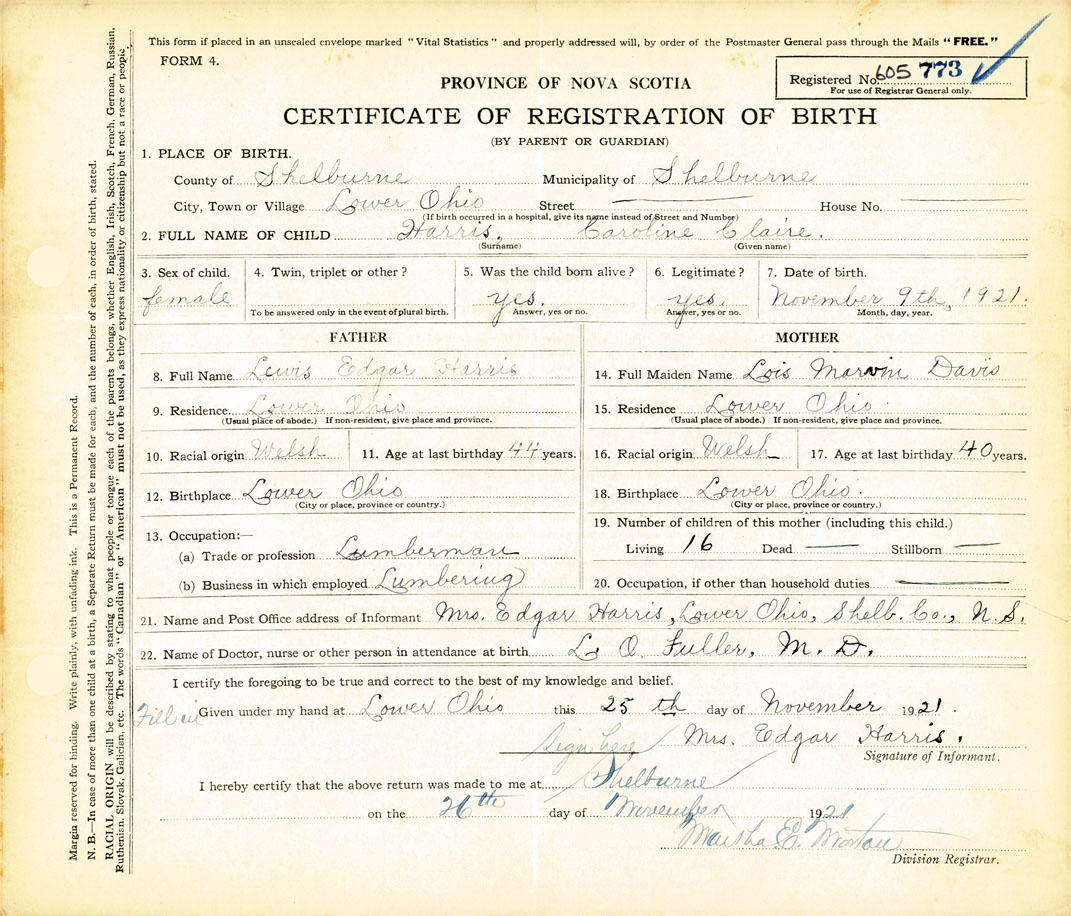 This form if placed in an unsealed envelope marked "Vital Statistics" and properly addressed will, by order of the Postmaster General pass through the Mails "FREE."
FORM 4.
PROVINCE OF NOVA SCOTIA
Registered No. 605 773
For use of Registrar General only.
CERTIFICATE OF REGISTRATION OF BIRTH
(BY PARENT OR GUARDIAN)
1. PLACE OF BIRTH.
County of Shelburne Municipality of Shelburne
City, Town or Village Lower Ohio Street House No.
(If birth occurred in a hospital, give its name instead of Street and Number)
2. FULL NAME OF CHILD Harris, Caroline Claire.
(Surname) (Given name)
3. Sex of child. 4. Twin, triplet or other? 5. Was the child born alive? 6. Legitimate? 7. Date of birth.
female yes. yes. November 9th, 1921.
To be answered only in the event of plural birth. Answer, yes or no. Answer, yes or no. Month, day, year.
FATHER
8. Full Name Lewis Edgar Harris
9. Residence Lower Ohio
(Usual place of abode.) If non-resident, give place and province.
10. Racial origin Welsh 11. Age at last birthday 44 years.
12. Birthplace Lower Ohio
(City or place, province or country.)
13. Occupation:—
(a) Trade or profession Lumberman
(b) Business in which employed Lumbering
MOTHER
14. Full Maiden Name Lois Marvin Davis
15. Residence Lower Ohio.
(Usual place of abode.) If non-resident, give place and province.
16. Racial origin Welsh 17. Age at last birthday 40 years.
18. Birthplace Lower Ohio.
(City or place, province or country.)
19. Number of children of this mother (including this child.)
Living 16 Dead — Stillborn —
20. Occupation, if other than household duties —
21. Name and Post Office address of Informant Mrs. Edgar Harris, Lower Ohio, Shelb. Co., N. S.
22. Name of Doctor, nurse or other person in attendance at birth L. O. Fuller, M. D.
I certify the foregoing to be true and correct to the best of my knowledge and belief.
Fill in Given under my hand at Lower Ohio this 25th day of November 1921.
Sign here Mrs. Edgar Harris.
Signature of Informant.
I hereby certify that the above return was made to me at Shelburne
on the 26th day of November 1921
Martha E. Morton
Division Registrar.
Margin reserved for binding. Write plainly, with unfading ink. This is a Permanent Record.
N. B.—In case of more than one child at a birth, a Separate Return must be made for each, and the number of each, in order of birth, stated.
RACIAL ORIGIN will be described by stating to what people or tongue each of the parents belongs, whether English, Irish, Scotch, French, German, Russian,
Ruthenian, Slovak, Galician, etc. The words "Canadian" or "American" must not be used, as they express nationality or citizenship but not a race or people.